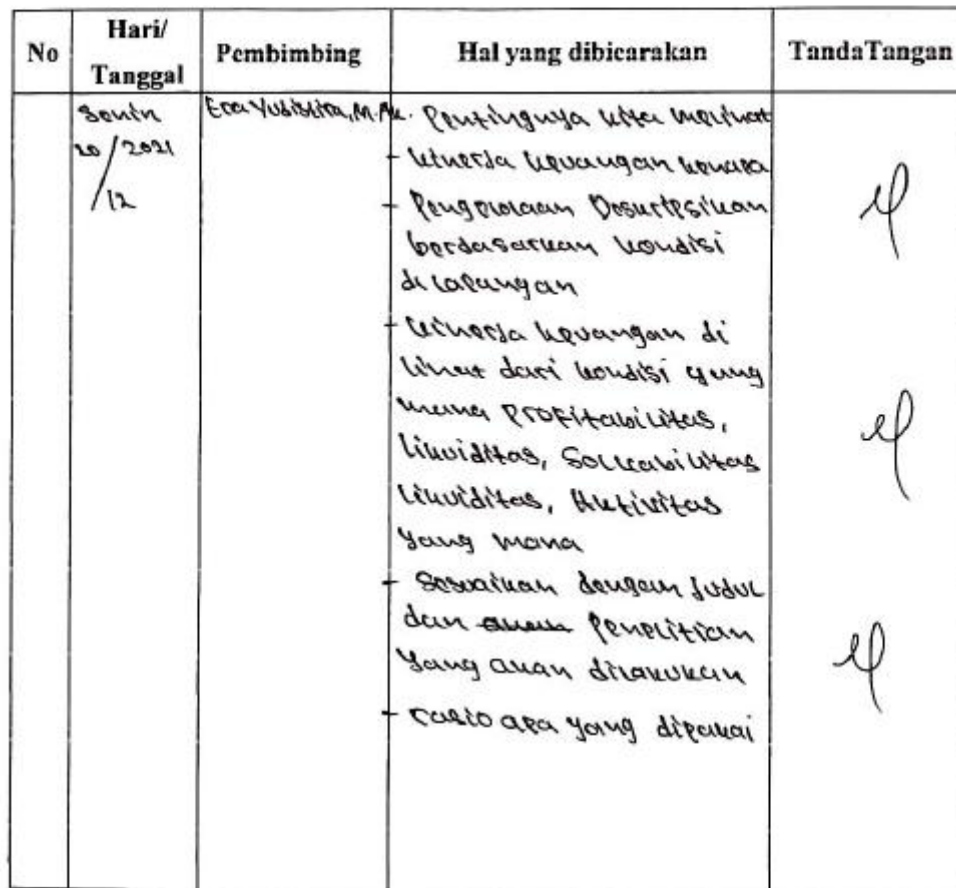 No Hari/ Tanggal Pembimbing Hal yang dibicarakan TandaTangan
Senin
20/2021
/12
Era Yudistira, M.Ak.
- Pentingnya kita melihat
- kinerja keuangan kenapa
- Pengelolaan Deskripsikan
berdasarkan kondisi
di lapangan
- kinerja keuangan di
lihat dari kondisi yang
mana Profitabilitas,
likuiditas, Solvabilitas
likuiditas, Aktivitas
yang mana
- Sesuaikan dengan Judul
dan Penelitian
yang akan dilakukan
- rasio apa yang dipakai